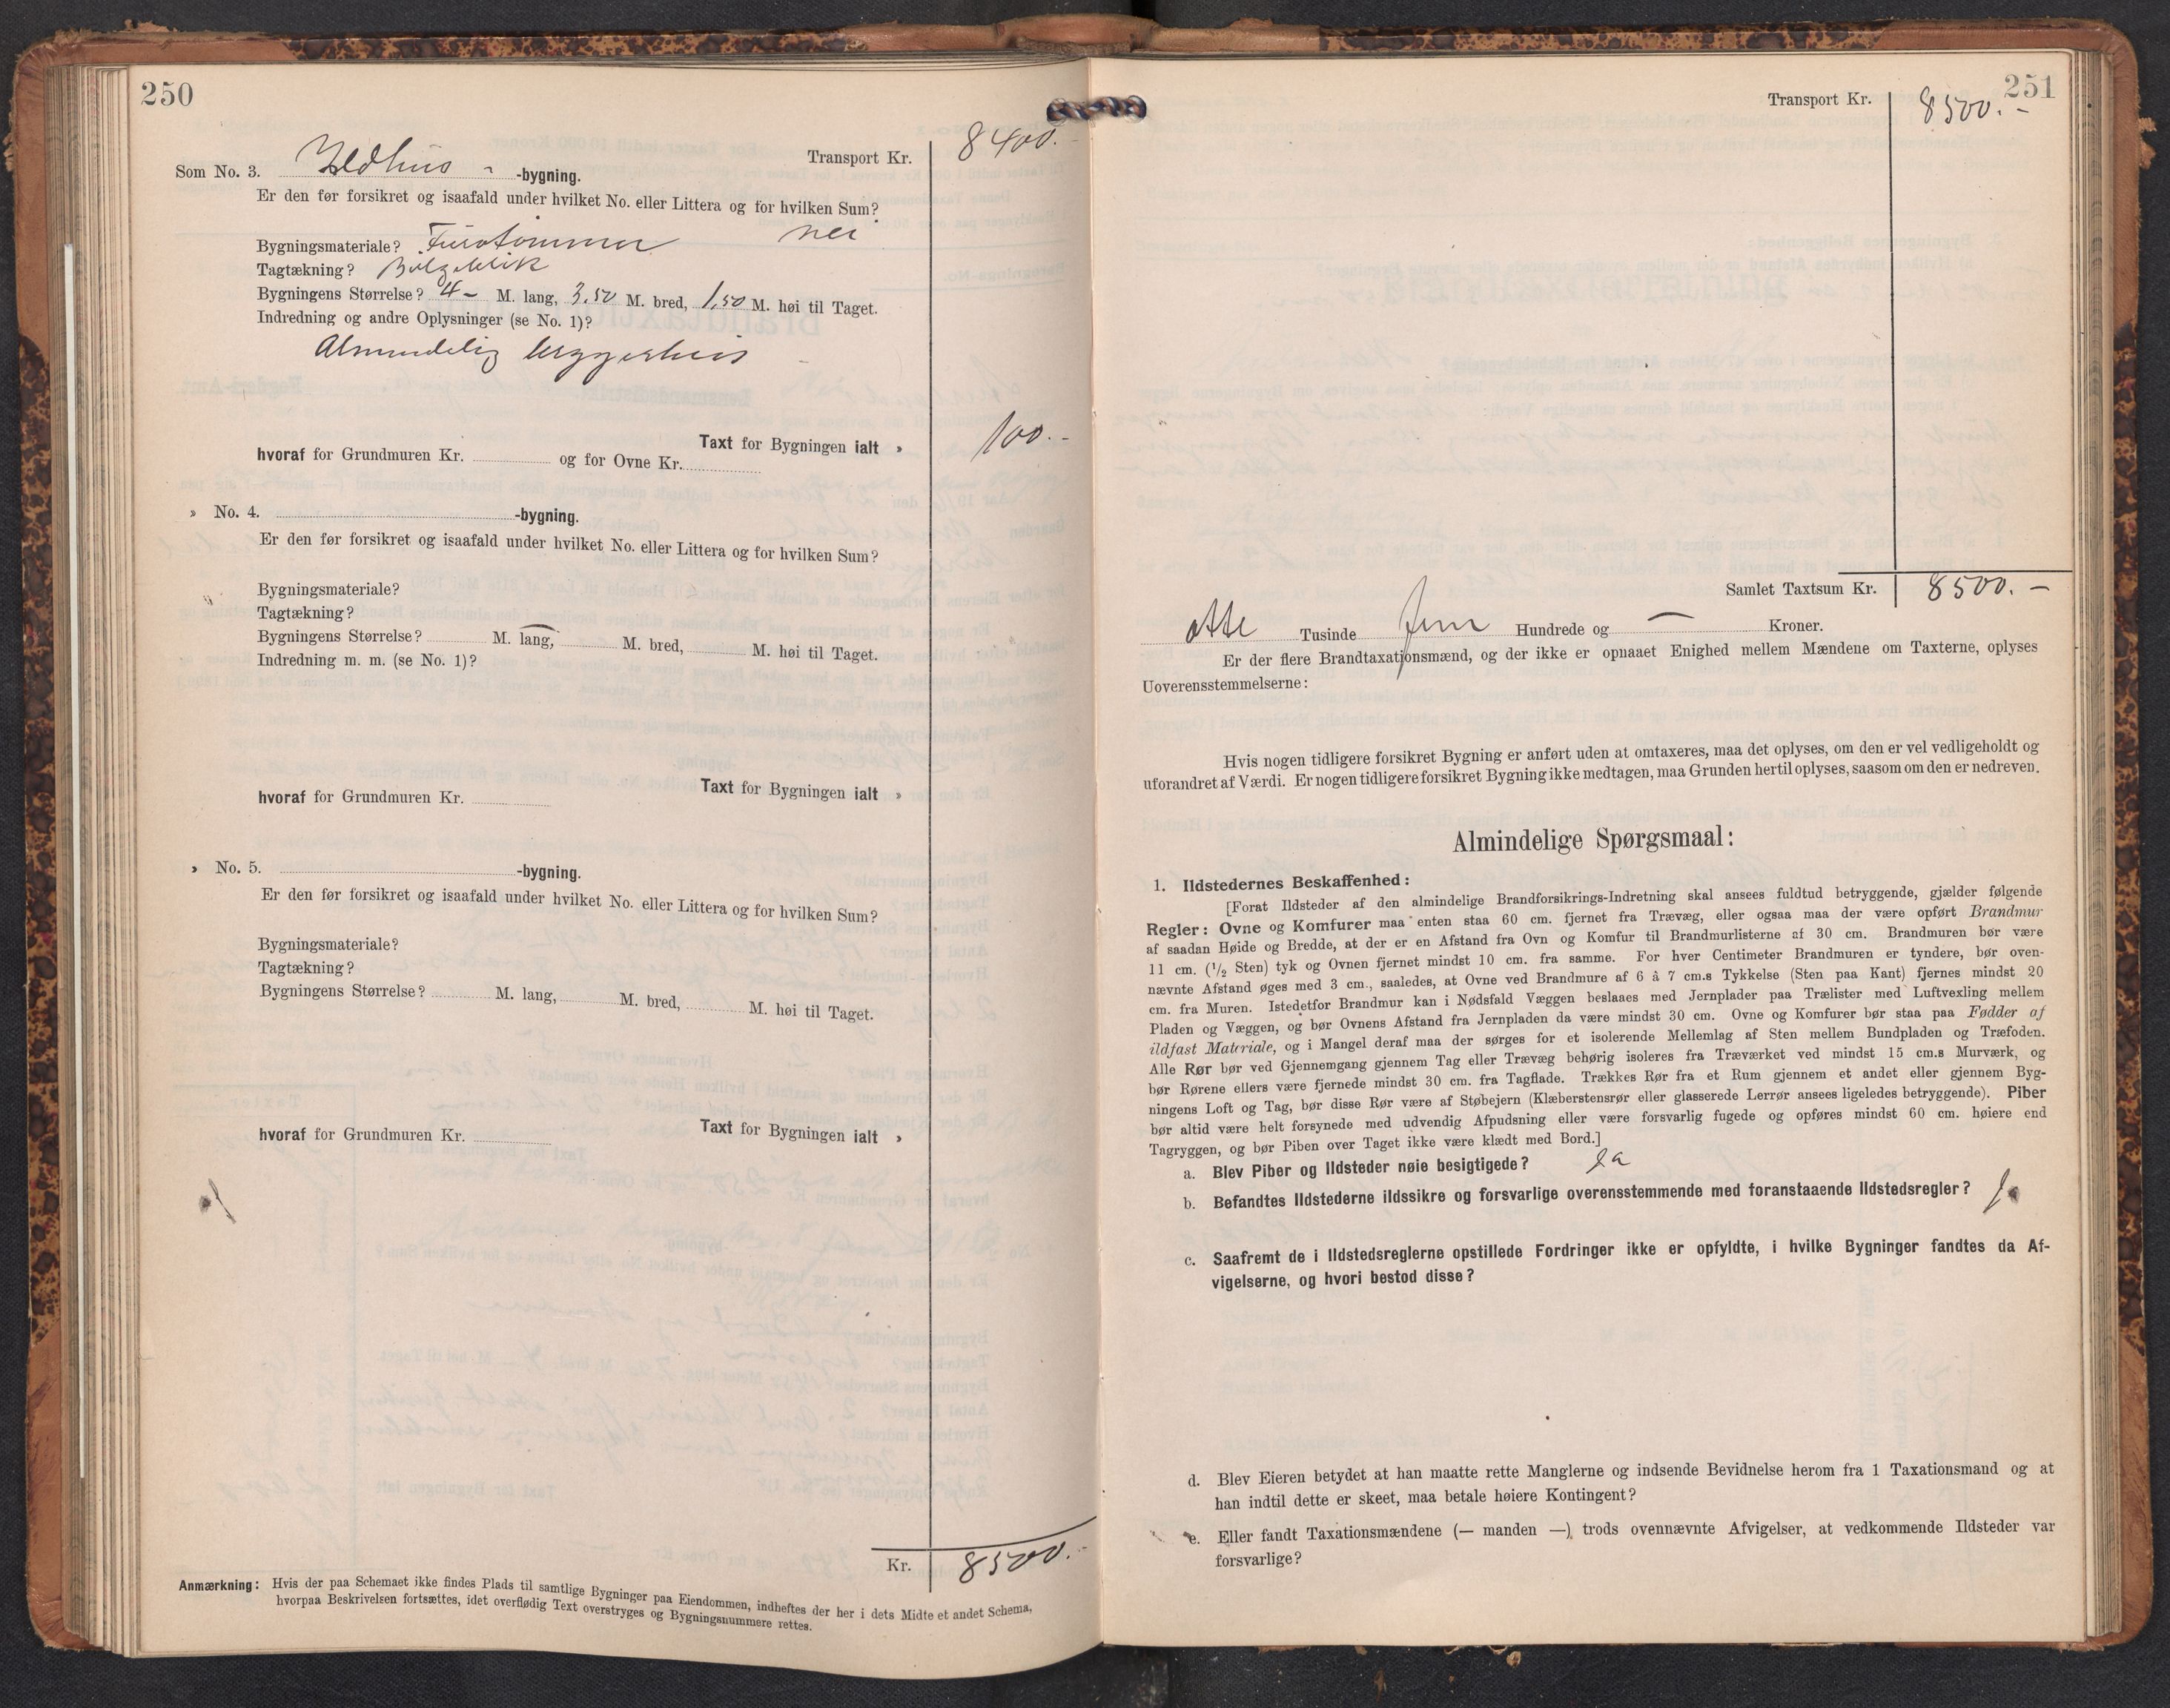 250
Transport Kr. 8400.-
Som No. 3. Ildhus - -bygning.
Er den før forsikret og isaafald under hvilket No. eller Littera og for hvilken Sum?
nei
Bygningsmateriale? Furutømmer
Tagtækning? Bølgeblik
Bygningens Størrelse? 4 - M. lang, 3,50 M. bred, 1,50 M. høi til Taget.
Indredning og andre Oplysninger (se No. 1)?
Almindelig bryggerhus
Taxt for Bygningen ialt » 100.-
hvoraf for Grundmuren Kr. og for Ovne Kr.
» No. 4. -bygning.
Er den før forsikret og isaafald under hvilket No. eller Littera og for hvilken Sum?
Bygningsmateriale?
Tagtækning?
Bygningens Størrelse? M. lang, M. bred, M. høi til Taget.
Indredning m. m. (se No. 1)?
Taxt for Bygningen ialt »
hvoraf for Grundmuren Kr.
» No. 5. -bygning.
Er den før forsikret og isaafald under hvilket No. eller Littera og for hvilken Sum?
Bygningsmateriale?
Tagtækning?
Bygningens Størrelse? M. lang, M. bred, M. høi til Taget.
Taxt for Bygningen ialt »
hvoraf for Grundmuren Kr.
Kr. 8500.-
Anmærkning: Hvis der paa Schemaet ikke findes Plads til samtlige Bygninger paa Eiendommen, indheftes der her i dets Midte et andet Schema,
hvorpaa Beskrivelsen fortsættes, idet overflødig Text overstryges og Bygningsnummere rettes.
251
Transport Kr. 8500.-
Samlet Taxtsum Kr. 8500.-
otte Tusinde fem Hundrede og — Kroner.
Er der flere Brandtaxationsmænd, og der ikke er opnaaet Enighed mellem Mændene om Taxterne, oplyses
Uoverensstemmelserne:
Hvis nogen tidligere forsikret Bygning er anført uden at omtaxeres, maa det oplyses, om den er vel vedligeholdt og
uforandret af Værdi. Er nogen tidligere forsikret Bygning ikke medtagen, maa Grunden hertil oplyses, saasom om den er nedreven.
Almindelige Spørgsmaal:
1. Ildstedernes Beskaffenhed:
[Forat Ildsteder af den almindelige Brandforsikrings-Indretning skal ansees fuldtud betryggende, gjælder følgende
Regler: Ovne og Komfurer maa enten staa 60 cm. fjernet fra Trævæg, eller ogsaa maa der være opført Brandmur
af saadan Høide og Bredde, at der er en Afstand fra Ovn og Komfur til Brandmurlisterne af 30 cm. Brandmuren bør være
11 cm. (1/2 Sten) tyk og Ovnen fjernet mindst 10 cm. fra samme. For hver Centimeter Brandmuren er tyndere, bør oven-
nævnte Afstand øges med 3 cm., saaledes, at Ovne ved Brandmure af 6 à 7 cm.s Tykkelse (Sten paa Kant) fjernes mindst 20
cm. fra Muren. Istedetfor Brandmur kan i Nødsfald Væggen beslaaes med Jernplader paa Trælister med Luftvexling mellem
Pladen og Væggen, og bør Ovnens Afstand fra Jernpladen da være mindst 30 cm. Ovne og Komfurer bør staa paa Fødder af
ildfast Materiale, og i Mangel deraf maa der sørges for et isolerende Mellemlag af Sten mellem Bundpladen og Træfoden.
Alle Rør bør ved Gjennemgang gjennem Tag eller Trævæg behørig isoleres fra Træværket ved mindst 15 cm.s Murværk, og
bør Rørene ellers være fjernede mindst 30 cm. fra Tagflade. Trækkes Rør fra et Rum gjennem et andet eller gjennem Byg-
ningens Loft og Tag, bør disse Rør være af Støbejern (Klæberstensrør eller glasserede Lerrør ansees ligeledes betryggende). Piber
bør altid være helt forsynede med udvendig Afpudsning eller være forsvarlig fugede og opføres mindst 60 cm. høiere end
Tagryggen, og bør Piben over Taget ikke være klædt med Bord.]
a. Blev Piber og Ildsteder nøie besigtigede? Ja
b. Befandtes Ildstederne ildssikre og forsvarlige overensstemmende med foranstaaende Ildstedsregler? Ja
c. Saafremt de i Ildstedsreglerne opstillede Fordringer ikke er opfyldte, i hvilke Bygninger fandtes da Af-
vigelserne, og hvori bestod disse?
d. Blev Eieren betydet at han maatte rette Manglerne og indsende Bevidnelse herom fra 1 Taxationsmand og at
han indtil dette er skeet, maa betale høiere Kontingent?
e. Eller fandt Taxationsmændene (— manden —) trods ovennævnte Afvigelser, at vedkommende Ildsteder var
forsvarlige?